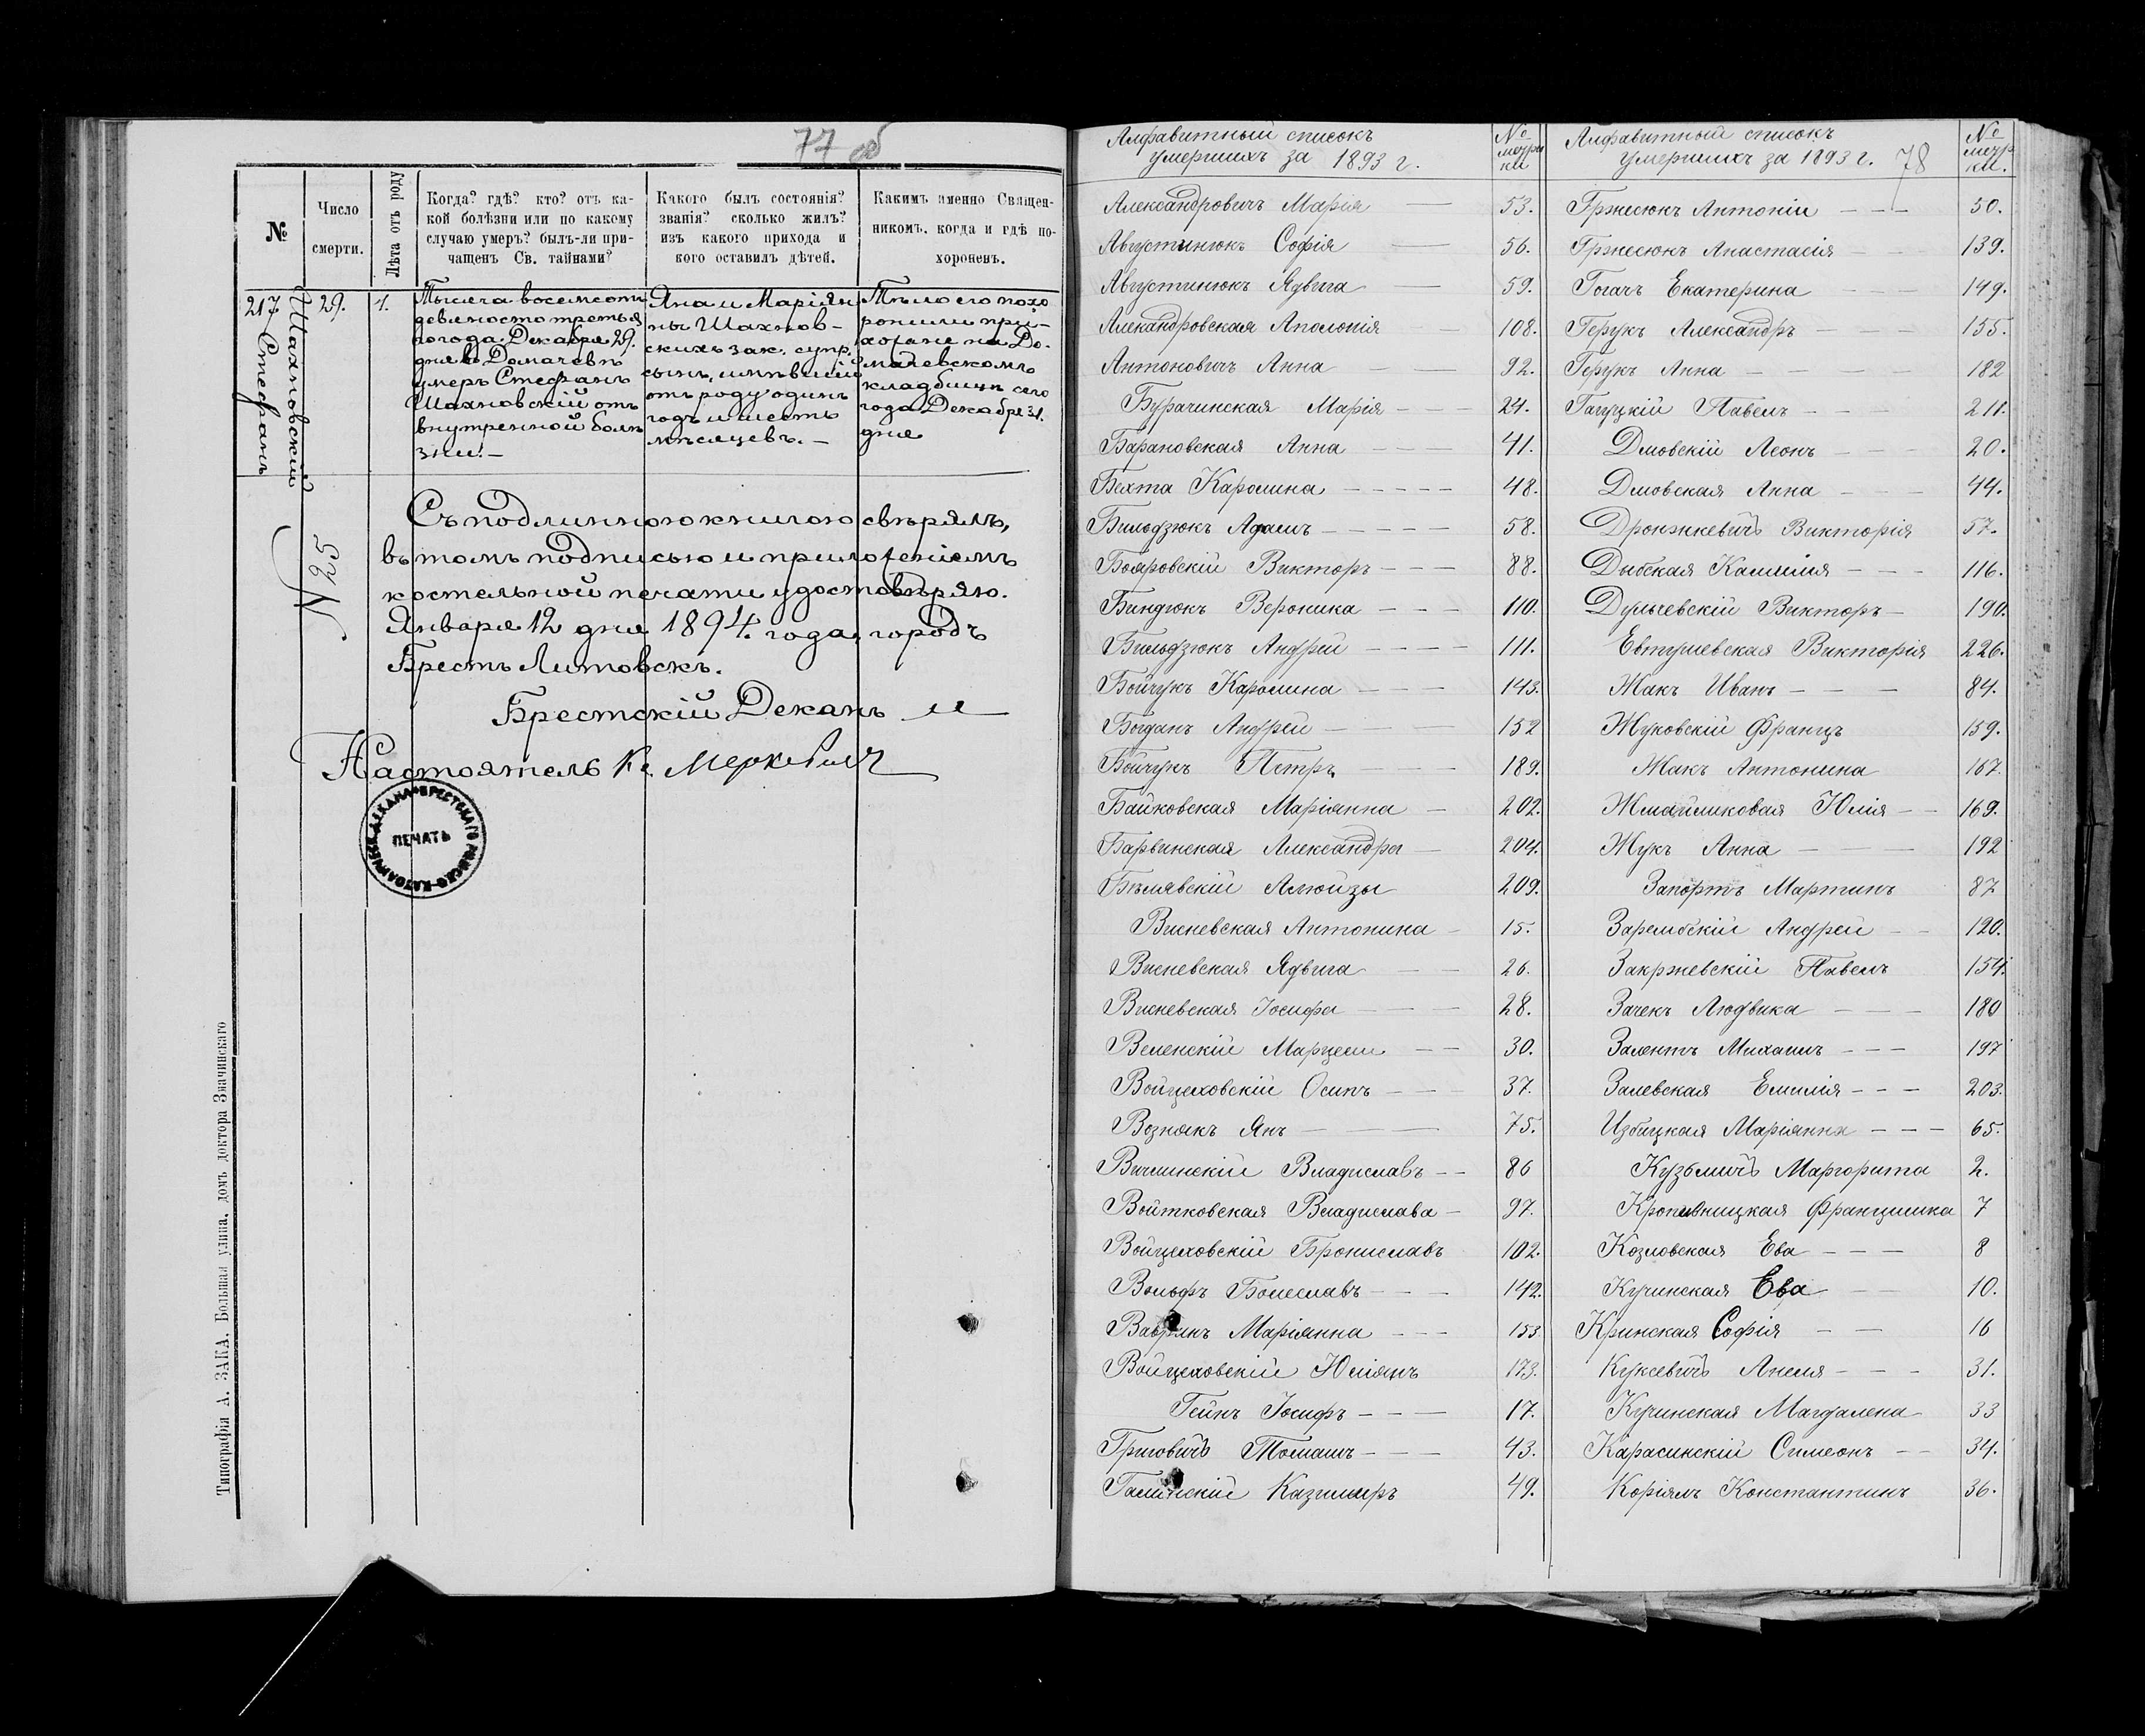 77 об
№
Число
смерти.
Лѣта отъ роду
Когда? гдѣ? кто? отъ ка-
кой болѣзни или по какому
случаю умеръ? былъ-ли при-
чащенъ Св. тайнами?
Какого былъ состоянія?
званія? сколько жилъ?
изъ какого прихода и
кого оставилъ дѣтей.
Какимъ именно Священ-
никомъ, когда и гдѣ по-
хороненъ.
217
Шахновскій
Стефанъ
29.
1.
Тысяча восемсотъ
девяносто третья
го года Декабря 29.
дня въ Домачевѣ
умеръ Стефанъ
Шахновскій отъ
внутренной болѣ
зни. —
Яна и Маріян
ны Шахнов-
скихъ зак. супр.
сынъ, имѣвшій
отъ роду одинъ
годъ и шесть
мѣсяцевъ. —
Тѣло его похо
ронили при-
хожане на До-
мачевскомъ
кладбищѣ сего
года Декабря 31.
дня
N 25
Съ подлинною книгою свѣрялъ,
въ томъ подписью и приложеніемъ
костельной печати удостовѣряю.
Января 12 дня 1894 года, городъ
Брестъ Литовскъ.
Брестскій Деканъ и
Настоятель Кс. Меркевич
ПЕЧАТЬ
ДЕКАНА БРЕСТСКАГО РИМСКО-КАТОЛИЧЕСК
Типографія А. ЗАКА. Большая улица, домъ доктора Значинскаго
Алфавитный списокъ
умершихъ за 1893 г.
№
метри
ки
Александровичъ Марія 53.
Августинюкъ Софія 56.
Августинюкъ Ядвига 59.
Алекандровская Аполонія 108.
Антоновичъ Анна 92.
Бурачинская Марія 24.
Барановская Анна 41.
Бехта Каролина 48.
Бильдзюкъ Адамъ 58.
Бояровскій Викторъ 88.
Биндюкъ Вероника 110.
Бильдзюкъ Андрей 111.
Бойчукъ Каролина 143.
Богданъ Андрей 152
Бойчукъ Петръ 189.
Байковская Маріянна 202.
Барвинская Александра 204.
Бѣлявскій Алюйзы 209.
Висневская Антонина 15.
Висневская Ядвига 26.
Висневская Іосифа 28.
Веленскій Марцели 30.
Войцеховскій Осипъ 37.
Вознякъ Янъ 75.
Вичинскій Владиславъ 86
Войтковская Владислава 97.
Войцеховскій Брониславъ 102.
Вольфъ Болеславъ 142.
Маріянна 153
Войцеховскій Юліянъ 173.
Гейнъ Іосифъ 17.
Григовичъ Томашъ 43.
Галинскій Казимиръ 49.
Алфавитный списокъ
умершихъ за 1893 г.
78
№
метр
ки.
Гржесюкъ Антоній 50.
Гржесюкъ Анастасія 139.
Гогачъ Екатерина 149.
Герукъ Александръ 155.
Герукъ Анна 182
Гагуцкій Павелъ 211.
Дмовскій Леонъ 20.
Дмовская Анна 44.
Дронжкевичъ Викторія 57.
Дыбская Камилія 116.
Дульчевскій Викторъ 190.
Евтушевская Викторія 226.
Жакъ Иванъ 84.
Жуковскій Францъ 159.
Жакъ Антонина 167.
Жмайликовая Юлія 169.
Жукъ Анна 192
Запортъ Мартинъ 87
Зарембскій Андрей 120.
Закржевскій Павелъ 154.
Зачекъ Людвика 180
Залентъ Михаилъ 197
Залевская Емилія 203.
Избицкая Маріянна 65.
Кузьмичъ Маргорита 2.
Кропивницкая Францишка 7
Козловская Ева 8
Кучинская Ева 10.
Кринская Софія 16
Куксевичъ Анеля 31.
Кучинская Магдалена 33
Карасинскій Симеонъ 34.
Коріялъ Константинъ 36.